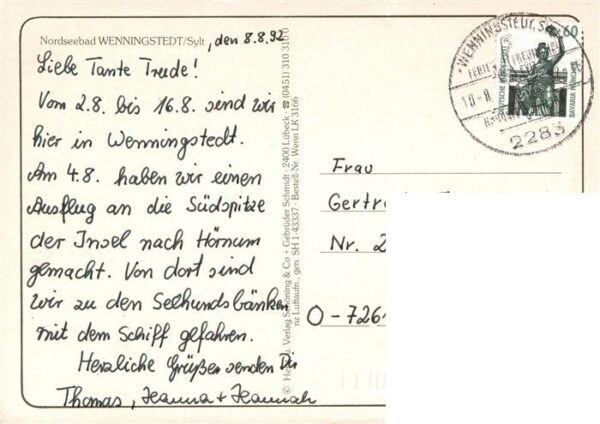 Nordseebad WENNINGSTEDT/Sylt, den 8.8.92
Liebe Tante Trude!
Vom 2.8. bis 16.8. sind wir
hier in Wenningstedt.
Am 4.8. haben wir einen
Ausflug an die Südspitze
der Insel nach Hörnum
gemacht. Von dort sind
wir zu den Seehundsbänken
mit dem Schiff gefahren.
Herzliche Grüße senden Dir
Thomas, Hanna + Hannah
Verlag Schöning & Co + Gebrüder Schmidt · 2400 Lübeck · ☎ (0451) 310 310
nz Luftaufn., gen. SH 1-43337 · Bestell-Nr. Wenn LK 3166
WENNINGSTEDT, S
2283
60
DEUTSCHE BUNDESPOST
BAVARIA MÜNCHEN
Frau
Gertr
Nr. 2
O-7261